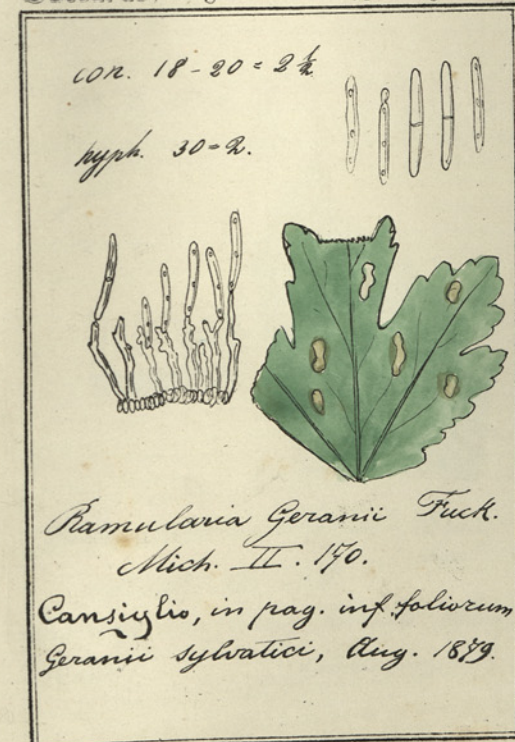 con. 18-20 = 2 ½
hyph. 30 = 2.
Ramularia Geranii Fuck.
Mich. II. 170.
Cansiglio, in pag. inf. foliorum
Geranii sylvatici, Aug. 1879.